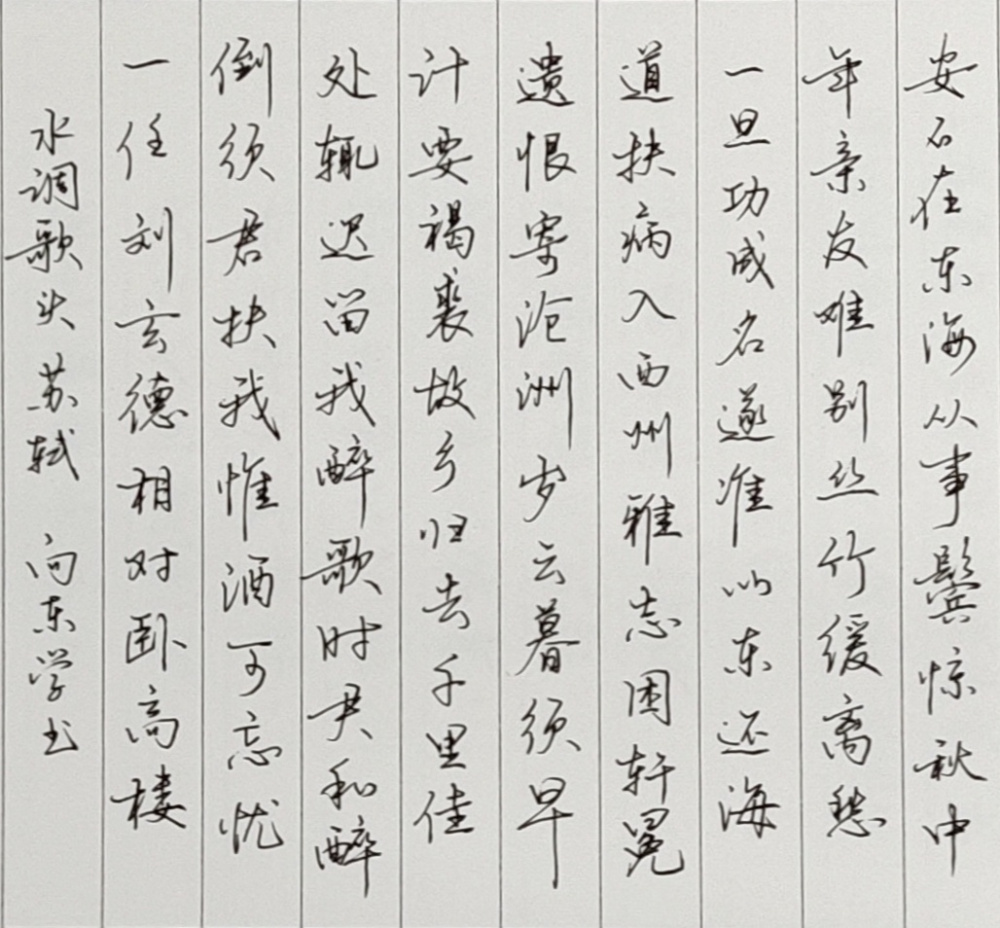 安石在东海从事鬓惊秋中
年亲友难别丝竹缓离愁
一旦功成名遂准以东还海
道扶病入西州雅志困轩冕
遗恨寄沧洲岁云暮须早
计要褐裘故乡归去千里佳
处辄迟留我醉歌时君和醉
倒须君扶我惟酒可忘忧
一任刘玄德相对卧高楼
水调歌头苏轼 向东学书